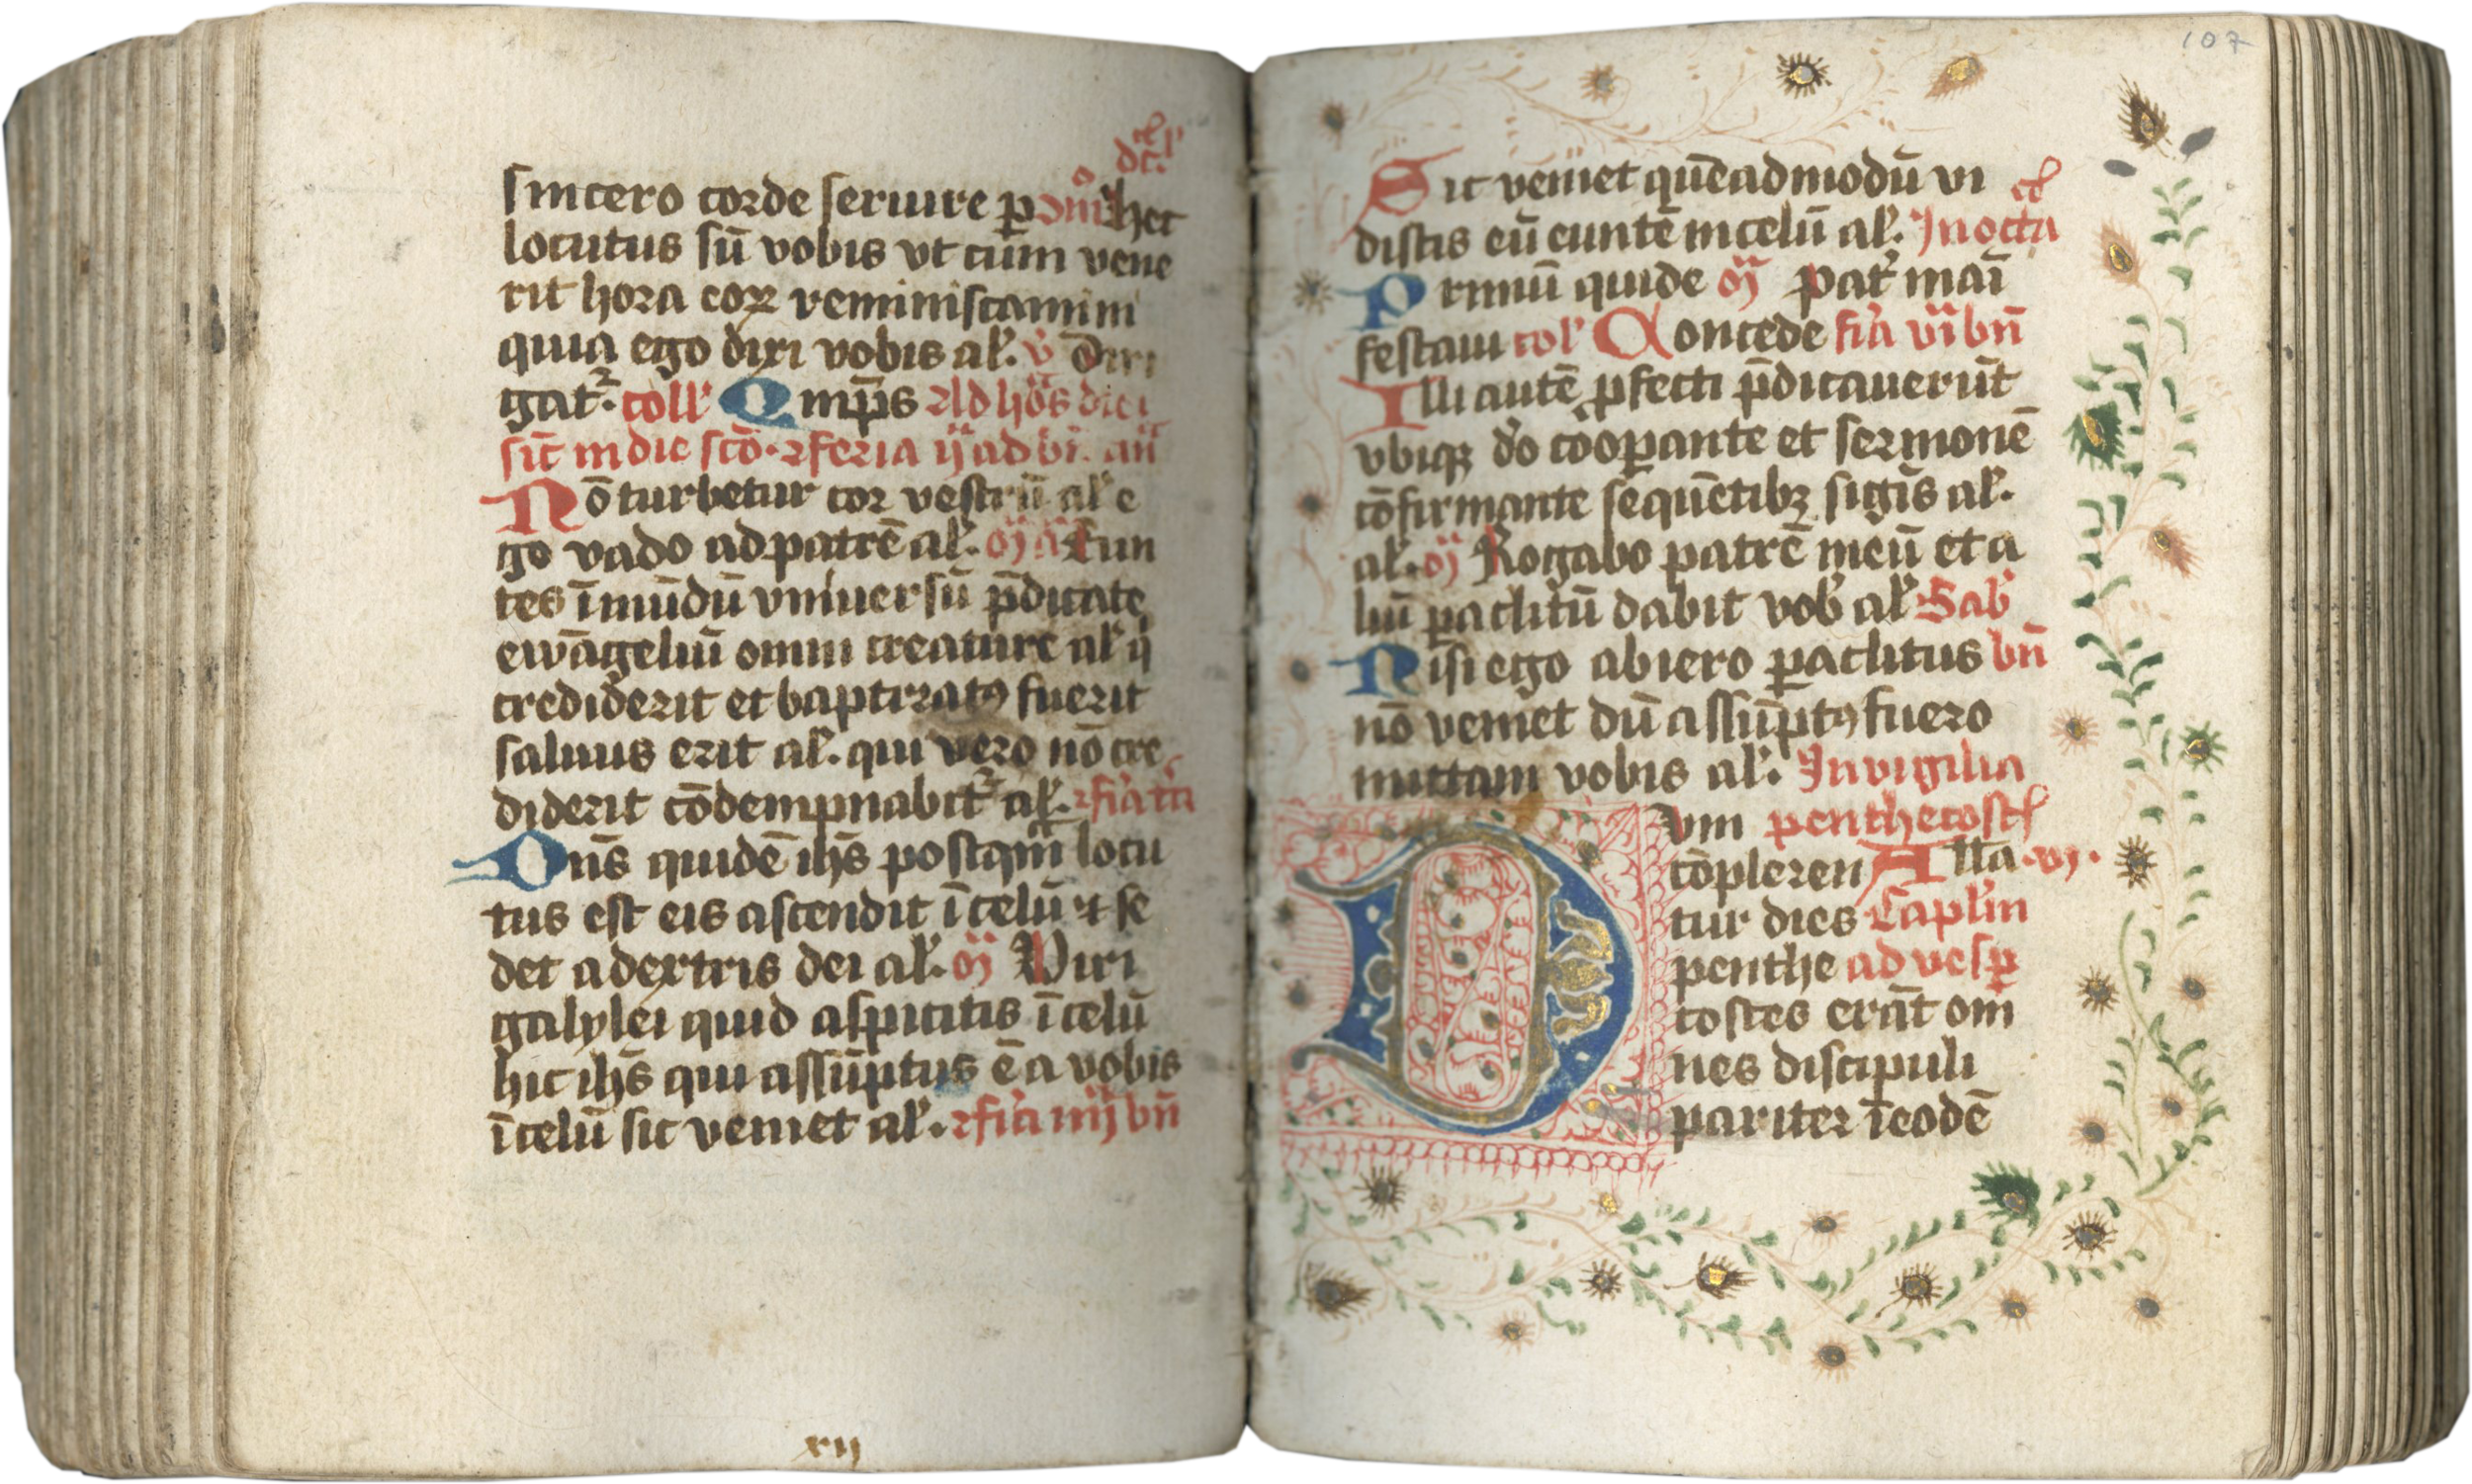 sincero corde seruire p dm̄ hec
locutus sū vobis vt cum vene
rit hora coꝝ reminiscamini
quia ego dixi vobis al'. v̄ Diri
gat᷑. coll' Omp̄s Ad hōs dici
sit̄ in die sctō. ⁊ feria ij ad bn̄. an̄
Nō turbetur cor vestrū al' e
go vado ad patrē al'. Eun
tes ī mūdū vniuersū p̄dicate
ewāgeliū omni creature al' q̄
crediderit et baptizatꝯ fuerit
saluus erit al'. qui vero nō cre
diderit cōdempnabit᷑ al'. ⁊ fīa
Dn̄s quidē ih̄s postqm̄ locu
tus est eis ascendit ī celū ⁊ se
det a dextris dei al'. Viri
galylei quid aspicitis ī celū
hic ih̄s qui assūptus ē a vobis
ī celū sic veniet al'. ⁊ fīa iiij bn̄
xij
107
Sic veniet quēadmodū vi
distis eū euntē in celū al'. In octa
Primū quidē Pat̄ mai
festaui col' Concede fīa vi bn̄
Illi autē pfecti p̄dicauerūt
vbiqꝫ dn̄o cōoꝑante et sermonē
cōfirmante sequētibꝫ sigīs al'.
al'. Rogabo patrē meū et a
liū ꝑaclitū dabit vob' al' Sab'
Nisi ego abiero ꝑaclitus bn̄
nō veniet dū assūptꝯ fuero
mittam vobis al'. In vigilia
Dum penthecost
cōpleren Alla. vj.
tur dies Capl'in
penthe ad vesꝑ
costes erāt om
nes discipuli
pariter ī eodē